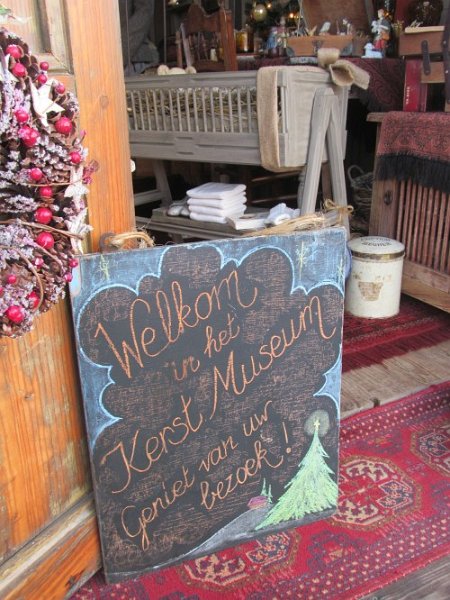 Welkom
in het
Kerst Museum
Geniet van uw
bezoek!